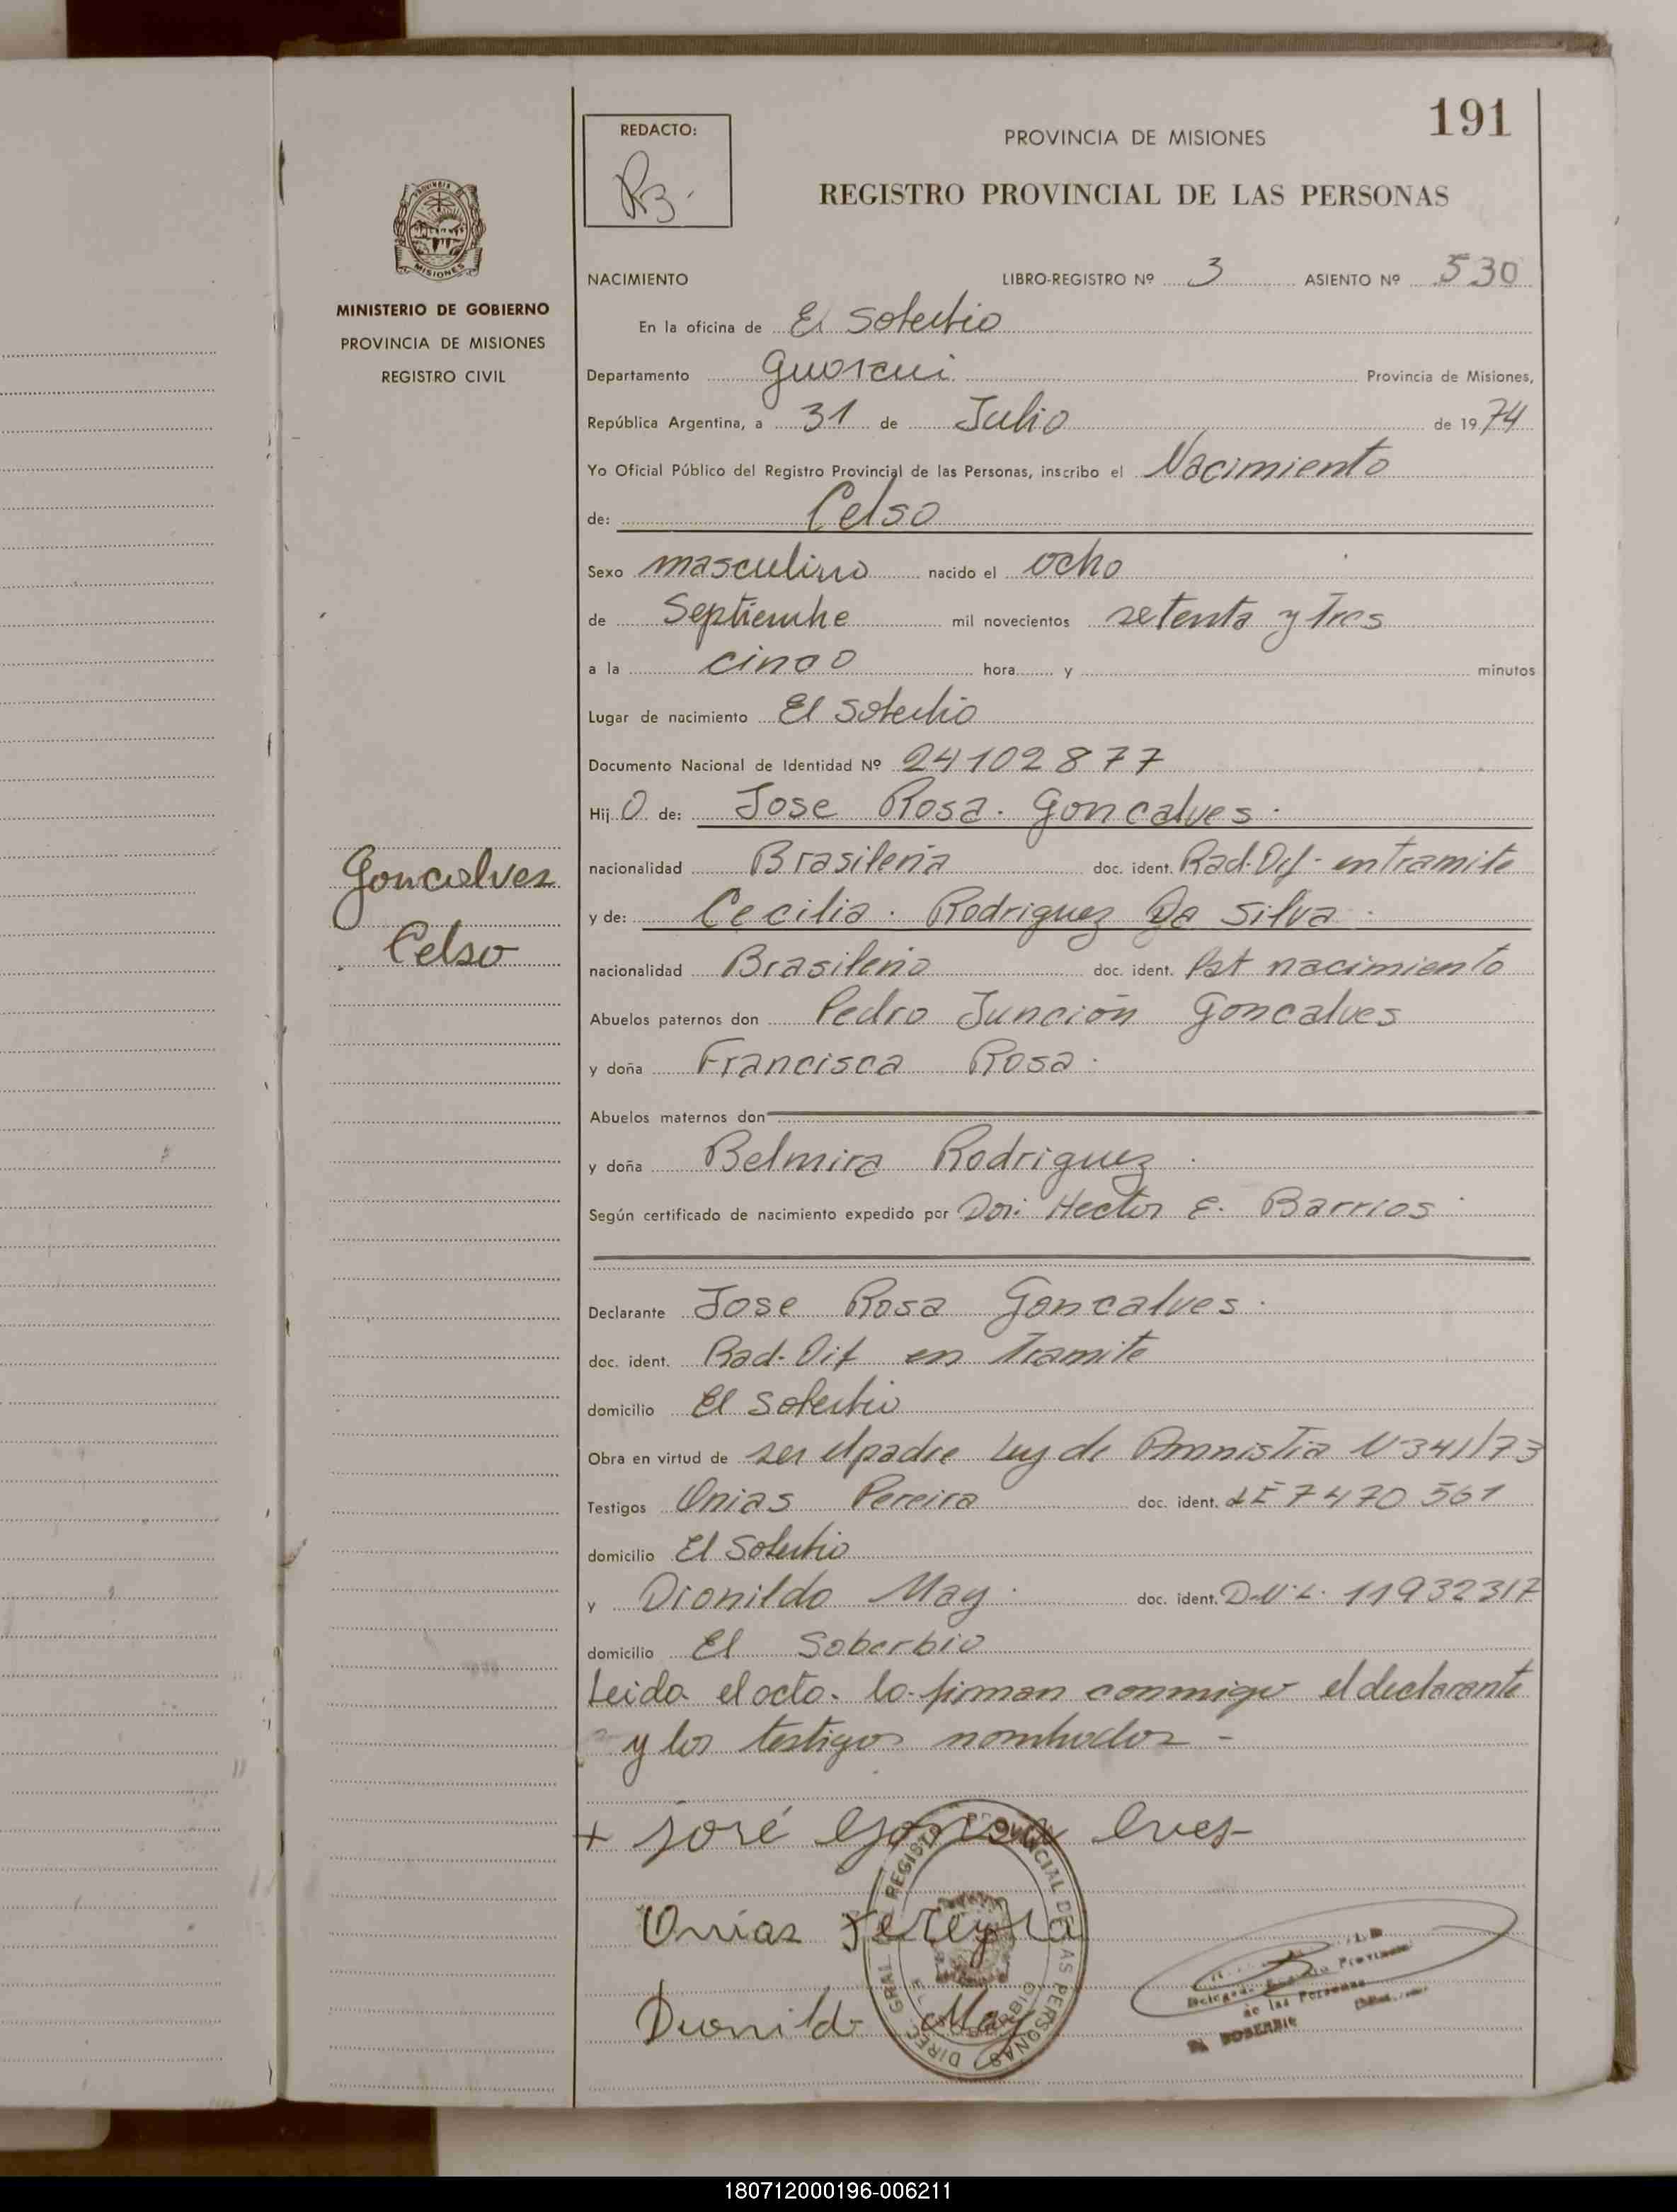 191
REDACTO:
PROVINCIA DE MISIONES
REGISTRO PROVINCIAL DE LAS PERSONAS
MISIONES
MINISTERIO DE GOBIERNO
PROVINCIA DE MISIONES
REGISTRO CIVIL
NACIMIENTO LIBRO-REGISTRO Nº 3 ASIENTO Nº 530
En la oficina de El Soberbio
Departamento Guarani Provincia de Misiones,
República Argentina, a 31 de Julio de 1974
Yo Oficial Público del Registro Provincial de las Personas, inscribo el Nacimiento
de: Celso
Sexo masculino nacido el ocho
de Septiembre mil novecientos setenta y tres
a la cinco hora y minutos
Lugar de nacimiento El Soberbio
Documento Nacional de Identidad Nº 24102877
Hij O de: Jose Rosa. Goncalves.
nacionalidad Brasileña doc. ident. Rad. Dif. en tramite
Goncalves
y de: Cecilia. Rodriguez Da Silva.
Celso
nacionalidad Brasileña doc. ident. Pat nacimiento
Abuelos paternos don Pedro Junción Goncalves
y doña Francisca Rosa.
Abuelos maternos don
y doña Belmira Rodriguez.
Según certificado de nacimiento expedido por Dor. Hector E. Barrios.
Declarante Jose Rosa Goncalves.
doc. ident. Rad. Dif en Tramite
domicilio El Soberbio
Obra en virtud de ser el padre Ley de Amnistia N 341/73
Testigos Onias Pereira doc. ident. LE 7470561
domicilio El Soberbio
y Dionildo May. doc. ident. D.N.I. 11932317
domicilio El Soberbio
Leida el acta. lo firman conmigo el declarante
y los testigos nombrados -
+ José Goncalves
Onias Pereyra
Dionildo May
DIREC. GRAL. REGISTRO PROVINCIAL DE LAS PERSONAS
EL SOBERBIO
de las Personas
EL SOBERBIO
180712000196-006211